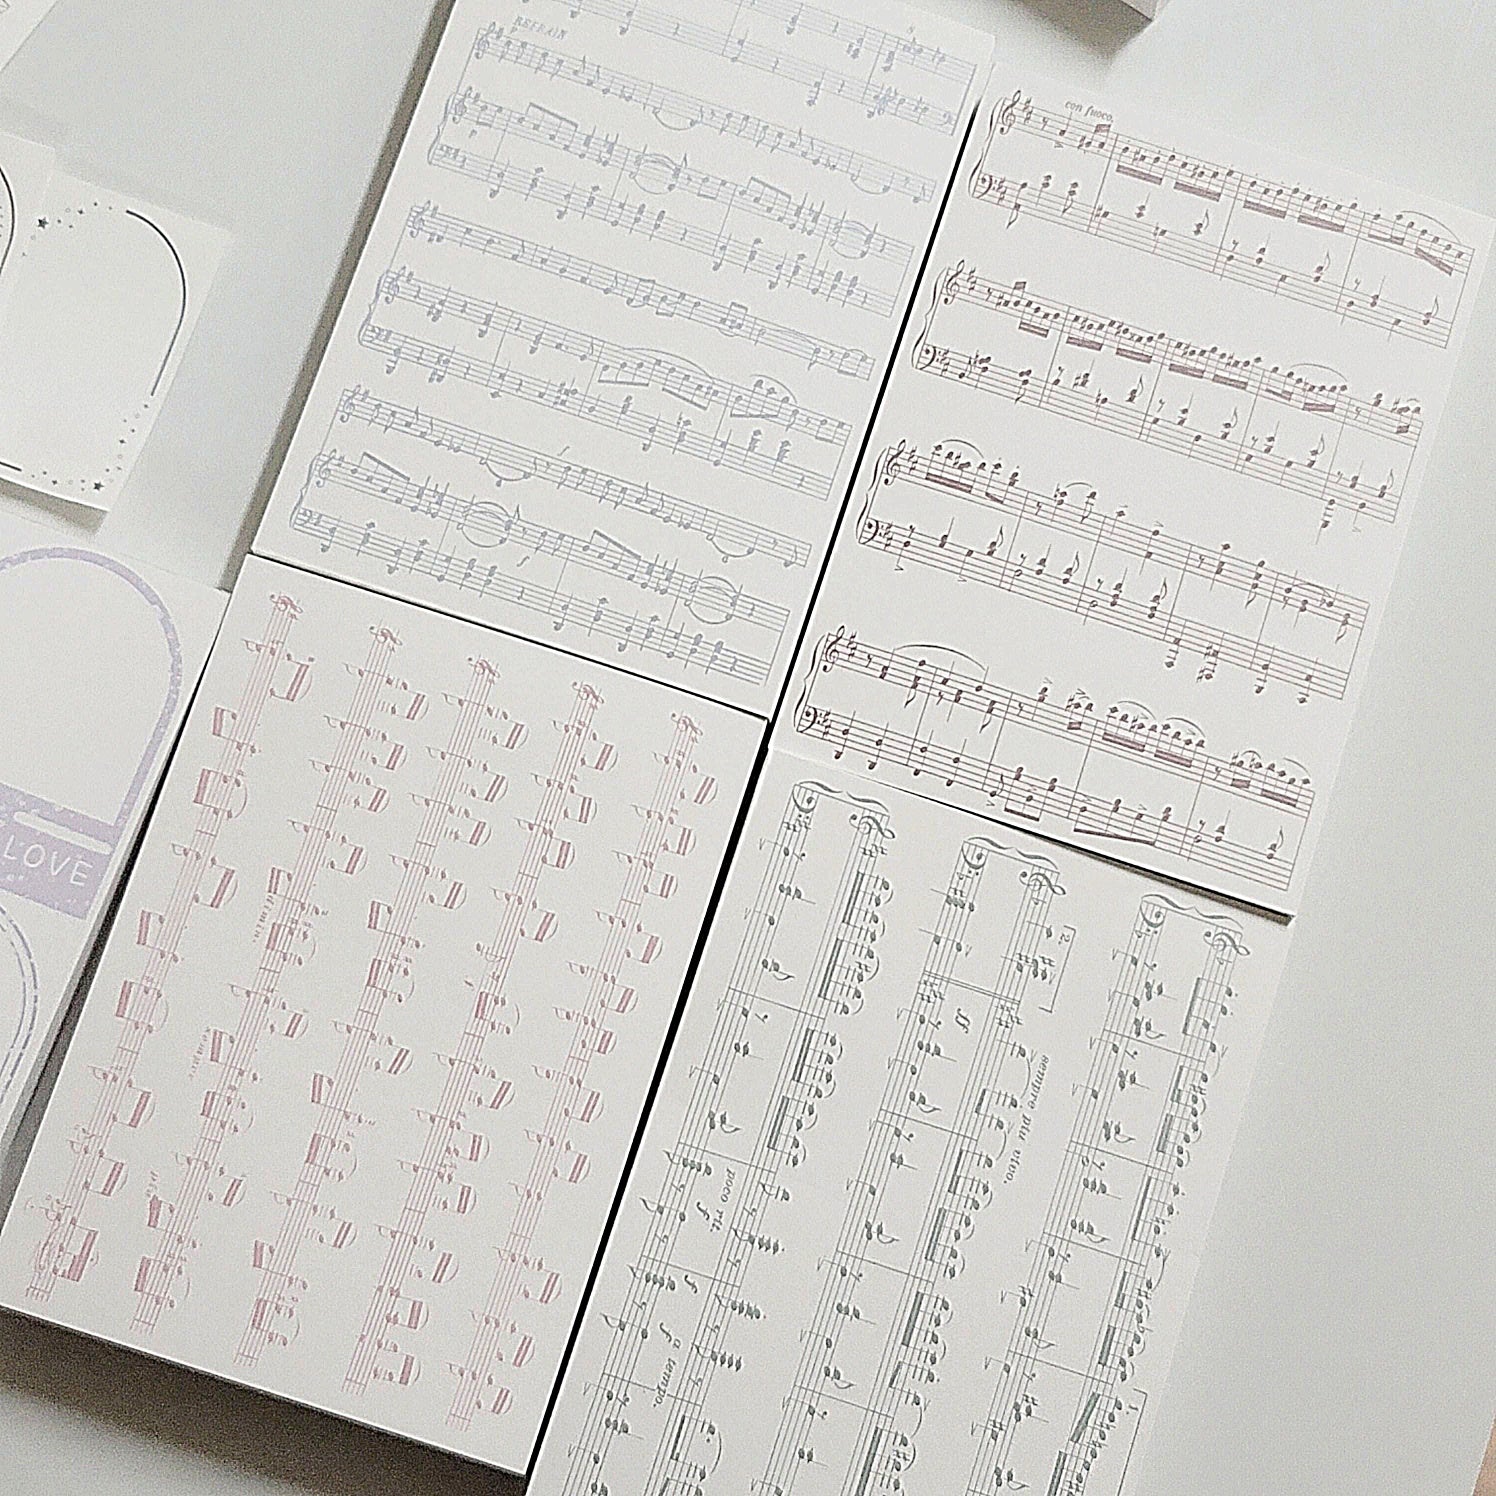 REFRAIN
con fuoco.
LOVE
2.
ff
sempre piu vivo.
poco rit.
f
f a tempo.
1.